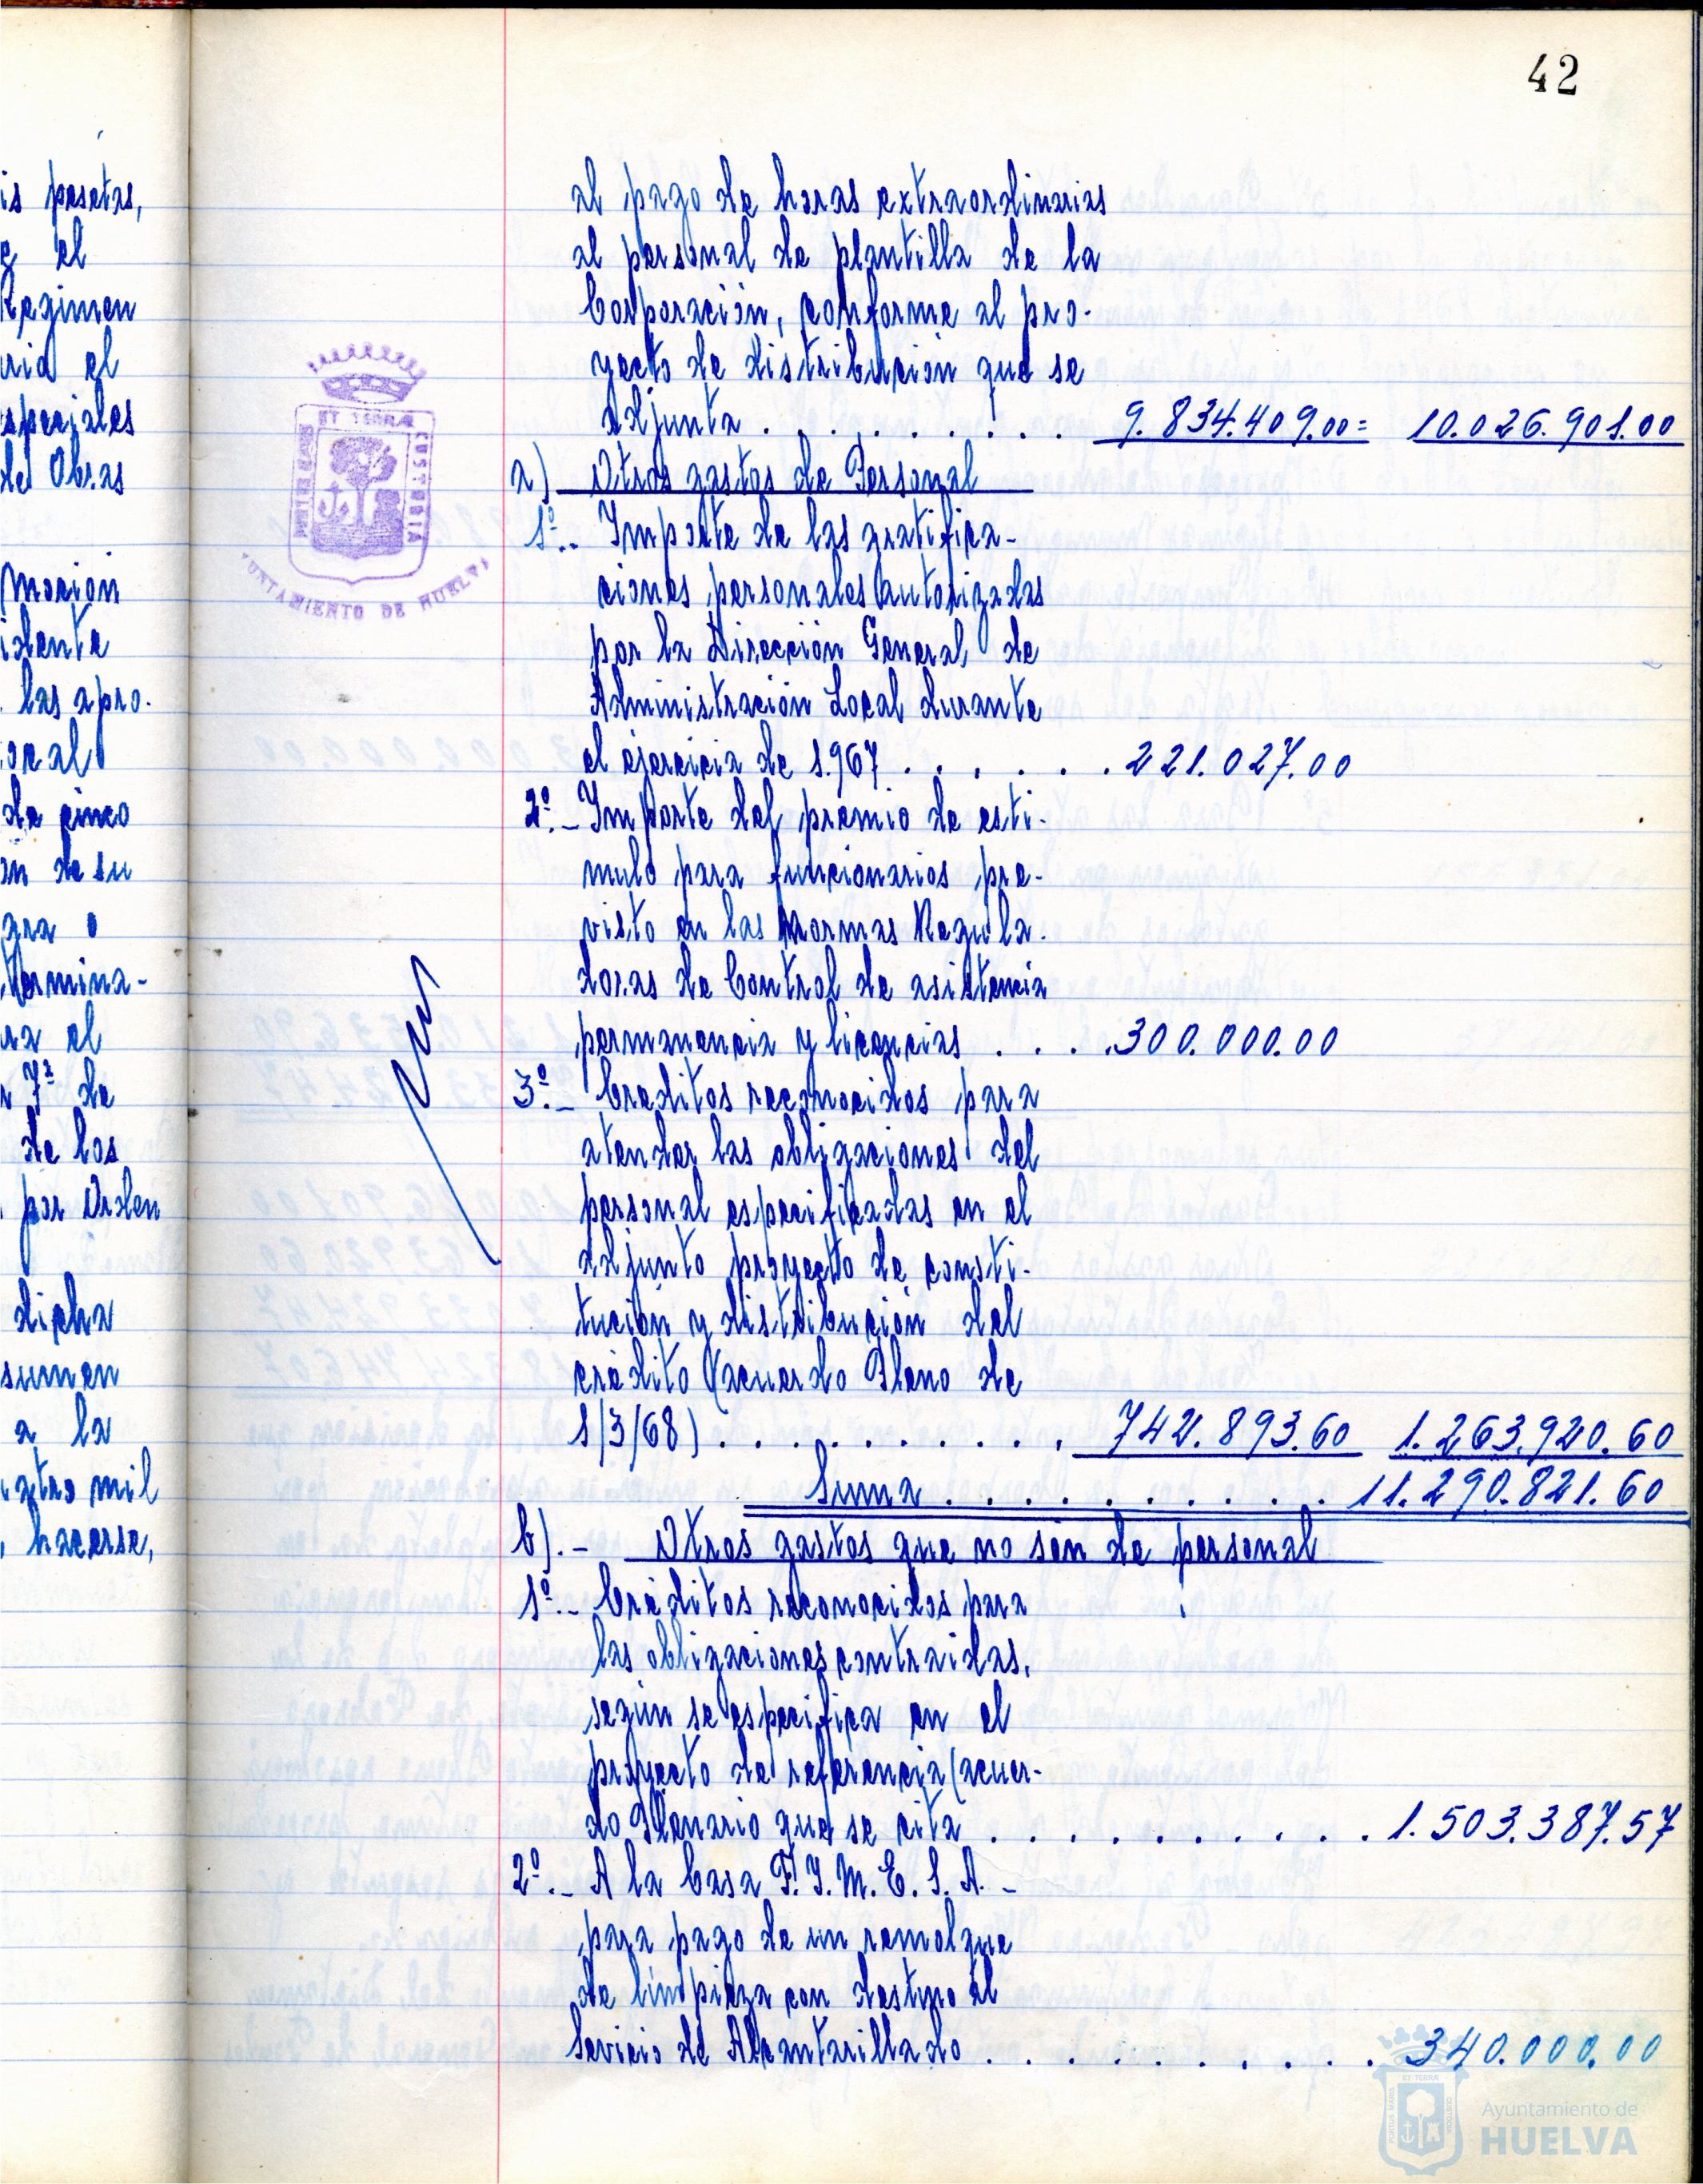 42
is pesetas,
e el
Regimen
ria el
speciales
de Obras
Moción
idente
las apro-
ocal
de cinco
ón de su
gra o
termina-
ra el
7ª de
de los
por Orden
dicha
sumen
a la
atro mil
hacerse,
al pago de horas extraordinarias
al personal de plantilla de la
Corporación, conforme al pro-
yecto de distribución que se
adjunta . . . . . . . . . . 9.834.409.00= 10.026.901.00
a) Otros gastos de Personal
1º.- Importe de las gratifica-
ciones personales autorizadas
por la Dirección General de
Administración Local durante
el ejercicio de 1.967 . . . . . . 221.027.00
2º.- Importe del premio de estí-
mulo para funcionarios pre-
visto en las Normas Regula-
doras de Control de asistencia
permanencia y licencias . . . . 300.000.00
3º.- Créditos reconocidos para
atender las obligaciones del
personal especificadas en el
adjunto proyecto de consti-
tución y distribución del
crédito (acuerdo Pleno de
1/3/68) . . . . . . . . . . . 742.893.60 1.263.920.60
Suma . . . . . . . . . . . 11.290.821.60
b).- Otros gastos que no son de personal
1º.- Créditos reconocidos para
las obligaciones contraidas,
según se especifica en el
proyecto de referencia (acuer-
do Plenario que se cita . . . . . . . . . . 1.503.387.57
2º.- A la Casa F.I.M.E.S.A. -
para pago de un remolque
de limpieza con destino al
Servicio de Alcantarillado . . . . . . . . . . 340.000.00
PORTUS MARIS ET TERRÆ CUSTODIA
AYUNTAMIENTO DE HUELVA
Ayuntamiento de
HUELVA